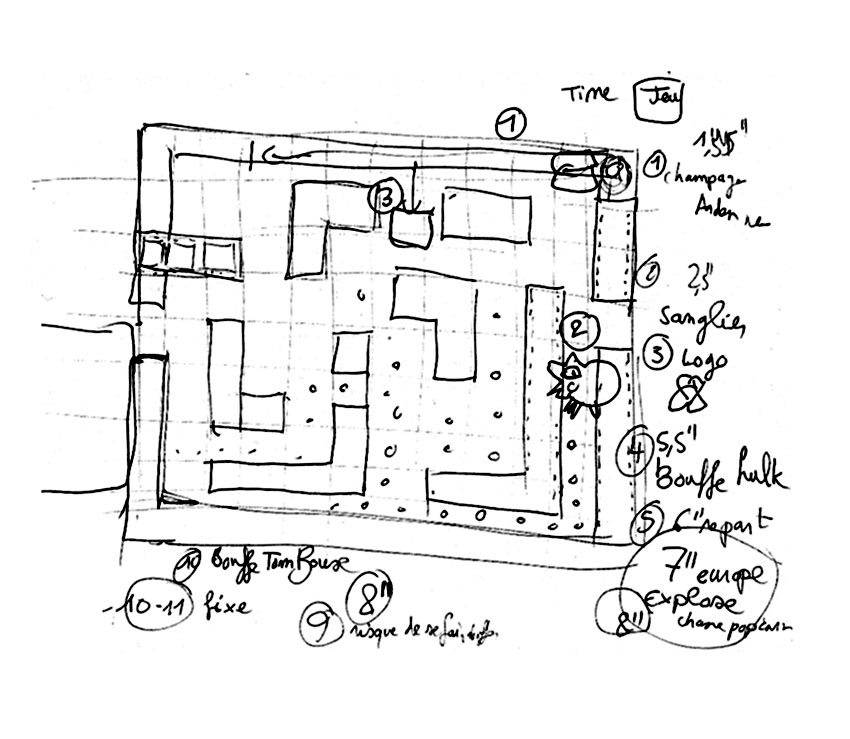 Time Jeu
①
①
champagn
Ardenne
③
② 2,5"
Sanglier
②
③ Logo
④ 5,5"
Bouffe hulk
⑤ 6" repart
7" europe
explose
8"
⑩ Bouffe Tim Bouse
10-11 fixe
8"
⑨ risque de se faire